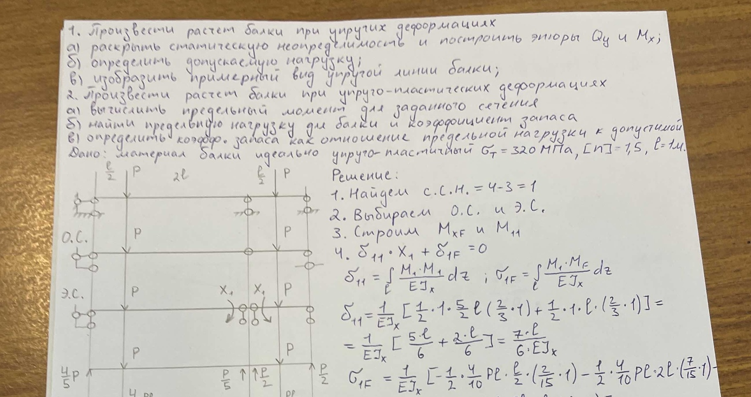 1. Произвести расчет балки при упругих деформациях
а) раскрыть статическую неопределимость и построить эпюры Qy и Mx;
б) определить допускаемую нагрузку;
в) изобразить примерный вид упругой линии балки;
2. Произвести расчет балки при упруго-пластических деформациях
а) вычислить предельный момент для заданного сечения
б) найти предельную нагрузку для балки и коэффициент запаса
в) определить коэфф. запаса как отношение предельной нагрузки к допустимой
Дано: материал балки идеально упруго-пластичный σт = 320 МПа, [n] = 1,5, l = 1м.
l/2 P 2l l/2 P
О.С. P P
Э.С. P X₁ X₁ P
4/5 P P P/5 P/2 P P/2
Решение:
1. Найдем с.с.н. = 4-3 = 1
2. Выбираем О.С. и Э.С.
3. Строим MXF и M11
4. δ11 · X1 + δ1F = 0
δ11 = ∫l M1·M1/EJx dz ; δ1F = ∫l M1·MF/EJx dz
δ11 = 1/EJx [1/2 · 1 · 5/2 l (2/3 · 1) + 1/2 · 1 · l · (2/3 · 1)] =
= 1/EJx [5·l/6 + 2·l/6] = 7·l/6·EJx
δ1F = 1/EJx [-1/2 · 4/10 Pl · l/2 · (2/15 · 1) - 1/2 · 4/10 Pl · 2l · (7/15 · 1) -